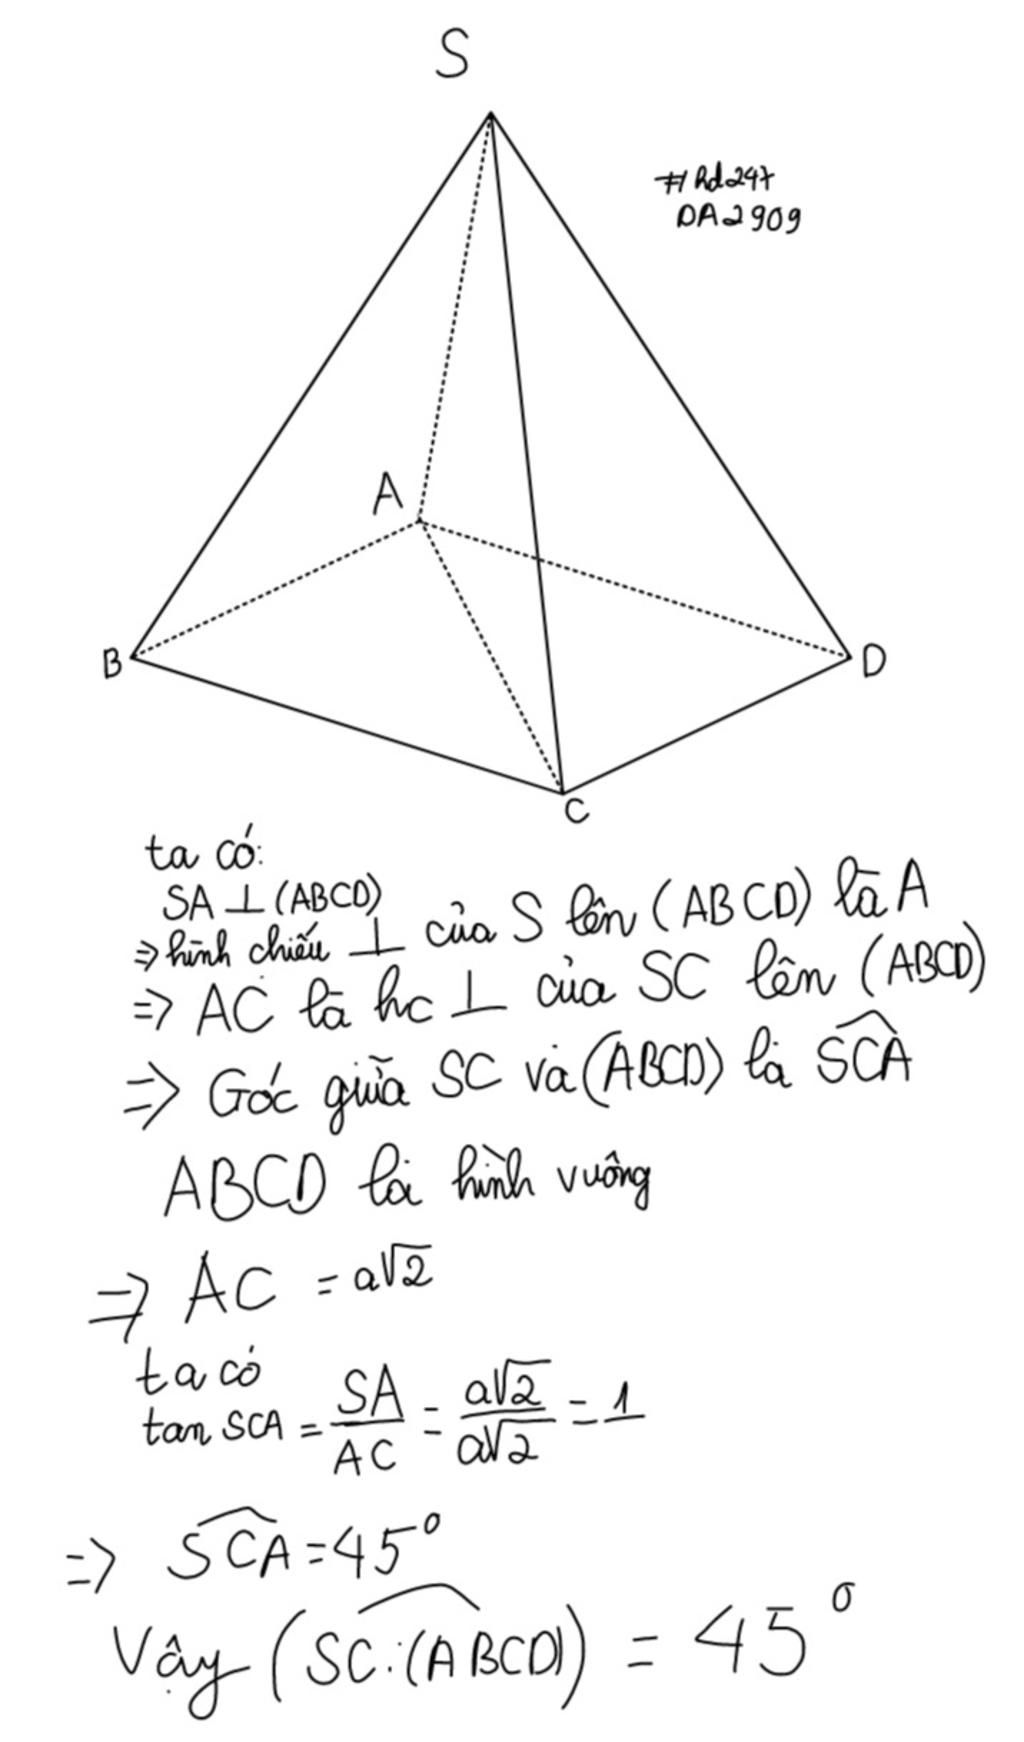 S
#hd247
DA2909
A
B
D
C
ta có:
SA ⊥ (ABCD)
⇒ hình chiếu ⊥ của S lên (ABCD) là A
⇒ AC là hc ⊥ của SC lên (ABCD)
⇒ Góc giữa SC và (ABCD) là \widehat{SCA}
ABCD là hình vuông
⇒ AC = a√2
ta có
tan SCA = SA/AC = a√2/a√2 = 1
⇒ \widehat{SCA} = 45°
Vậy (\widehat{SC:(ABCD)}) = 45°